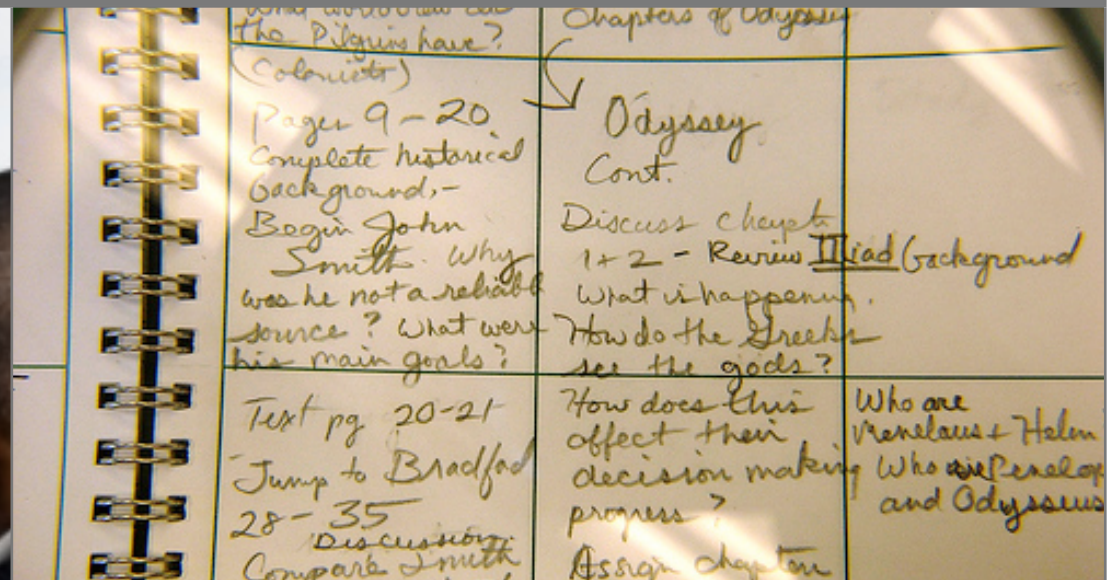 the Pilgrims have?
(Colonists)
Pages 9-20.
Complete historical
background,-
Begin John
Smith. Why
was he not a reliable
source? What were
his main goals?
Text pg 20-21
Jump to Bradford
28-35
Discussion.
Compare Smith
Chapters of Odyssey
Odyssey
Cont.
Discuss chapt
1+2 - Review Iliad background
What is happening.
How do the Greeks
see the gods?
How does this
affect their
decision making
progress?
Assign chapters
Who are
Menelaus + Helen
Who Penelop
and Odysseus